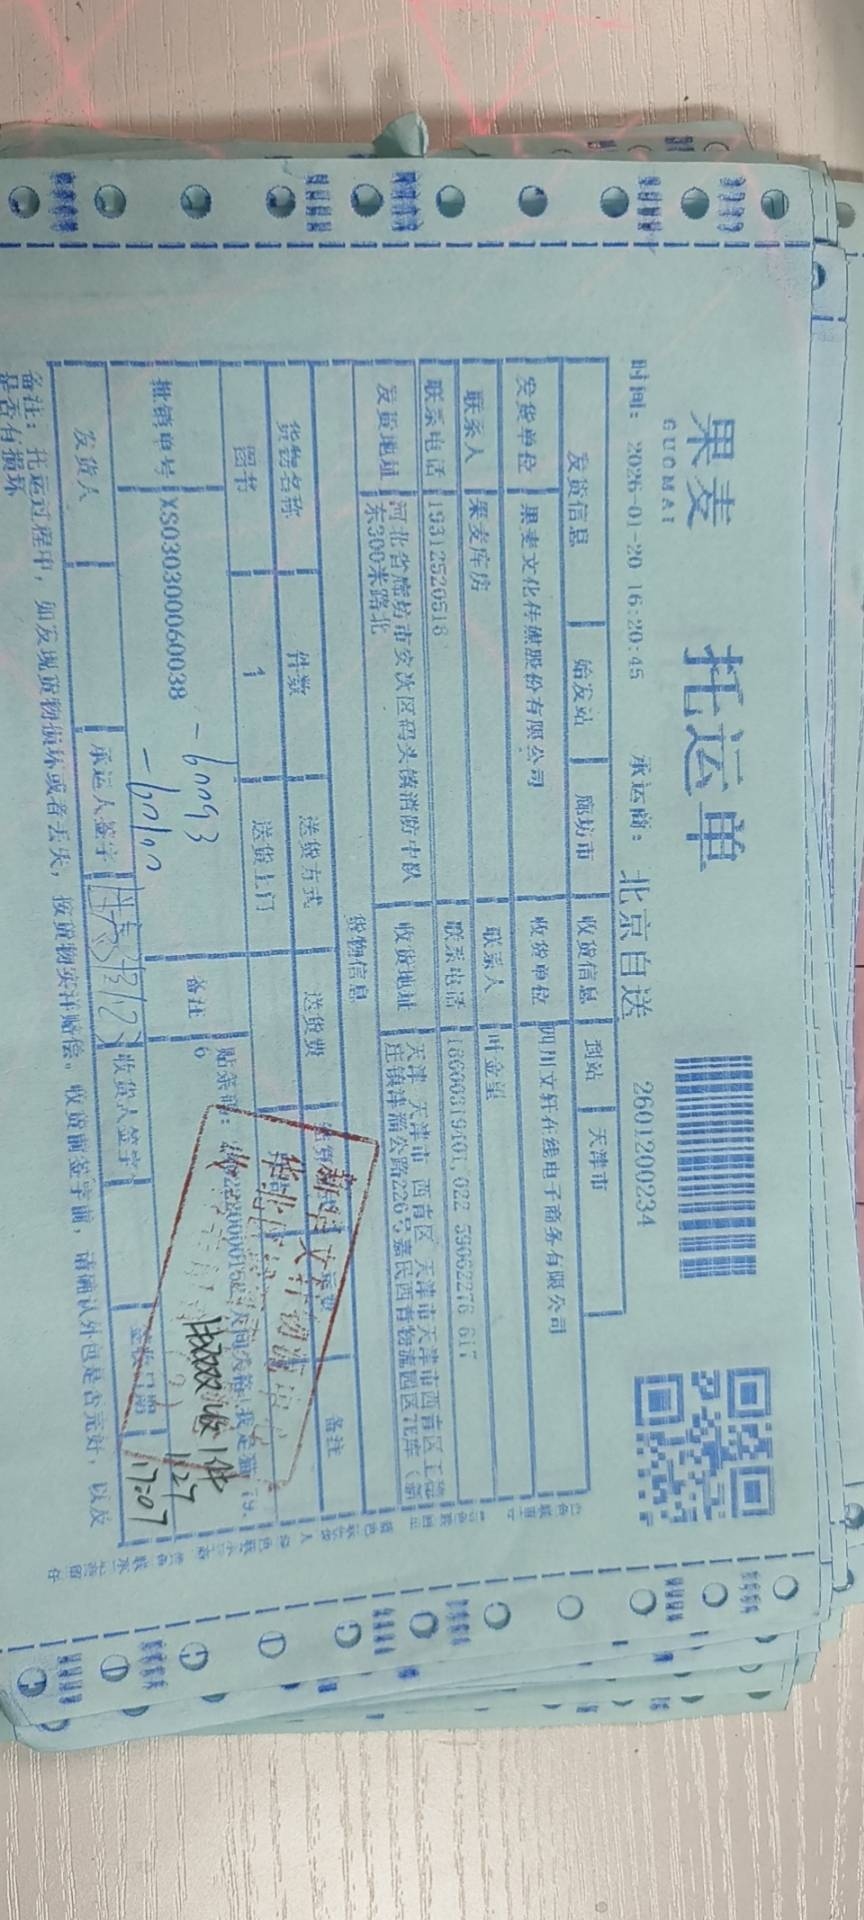 果麦
GUOMAI
托运单
2601200234
时间: 2026-01-20 16:20:45 承运商: 北京自送
发货信息 始发站 廊坊市 收货信息 到站 天津市
发货单位 果麦文化传媒股份有限公司 收货单位 四川文轩在线电子商务有限公司
联系人 果麦库房 联系人 叶金星
联系电话 19312520518 联系电话
发货地址 河北省廊坊市安次区码头镇消防中队东300米路北 收货地址 天津 天津市 西青区 天津市天津市西青区王稳庄镇津淄公路226号嘉民西青物流园区7E库（新
货物信息
货物名称 件数 送货方式 送货费 备注
图书 1 送货上门
批销单号 XS030300060038 备注 6
-60093
-60100
收1件
1.27
17:07
发货人 承运人签字 收货人签字 签收日期
备注: 托运过程中, 如发现货物损坏或者丢失, 按货物实洋赔偿。收货前签字前, 请确认外包是否完好, 以及
是否有损坏